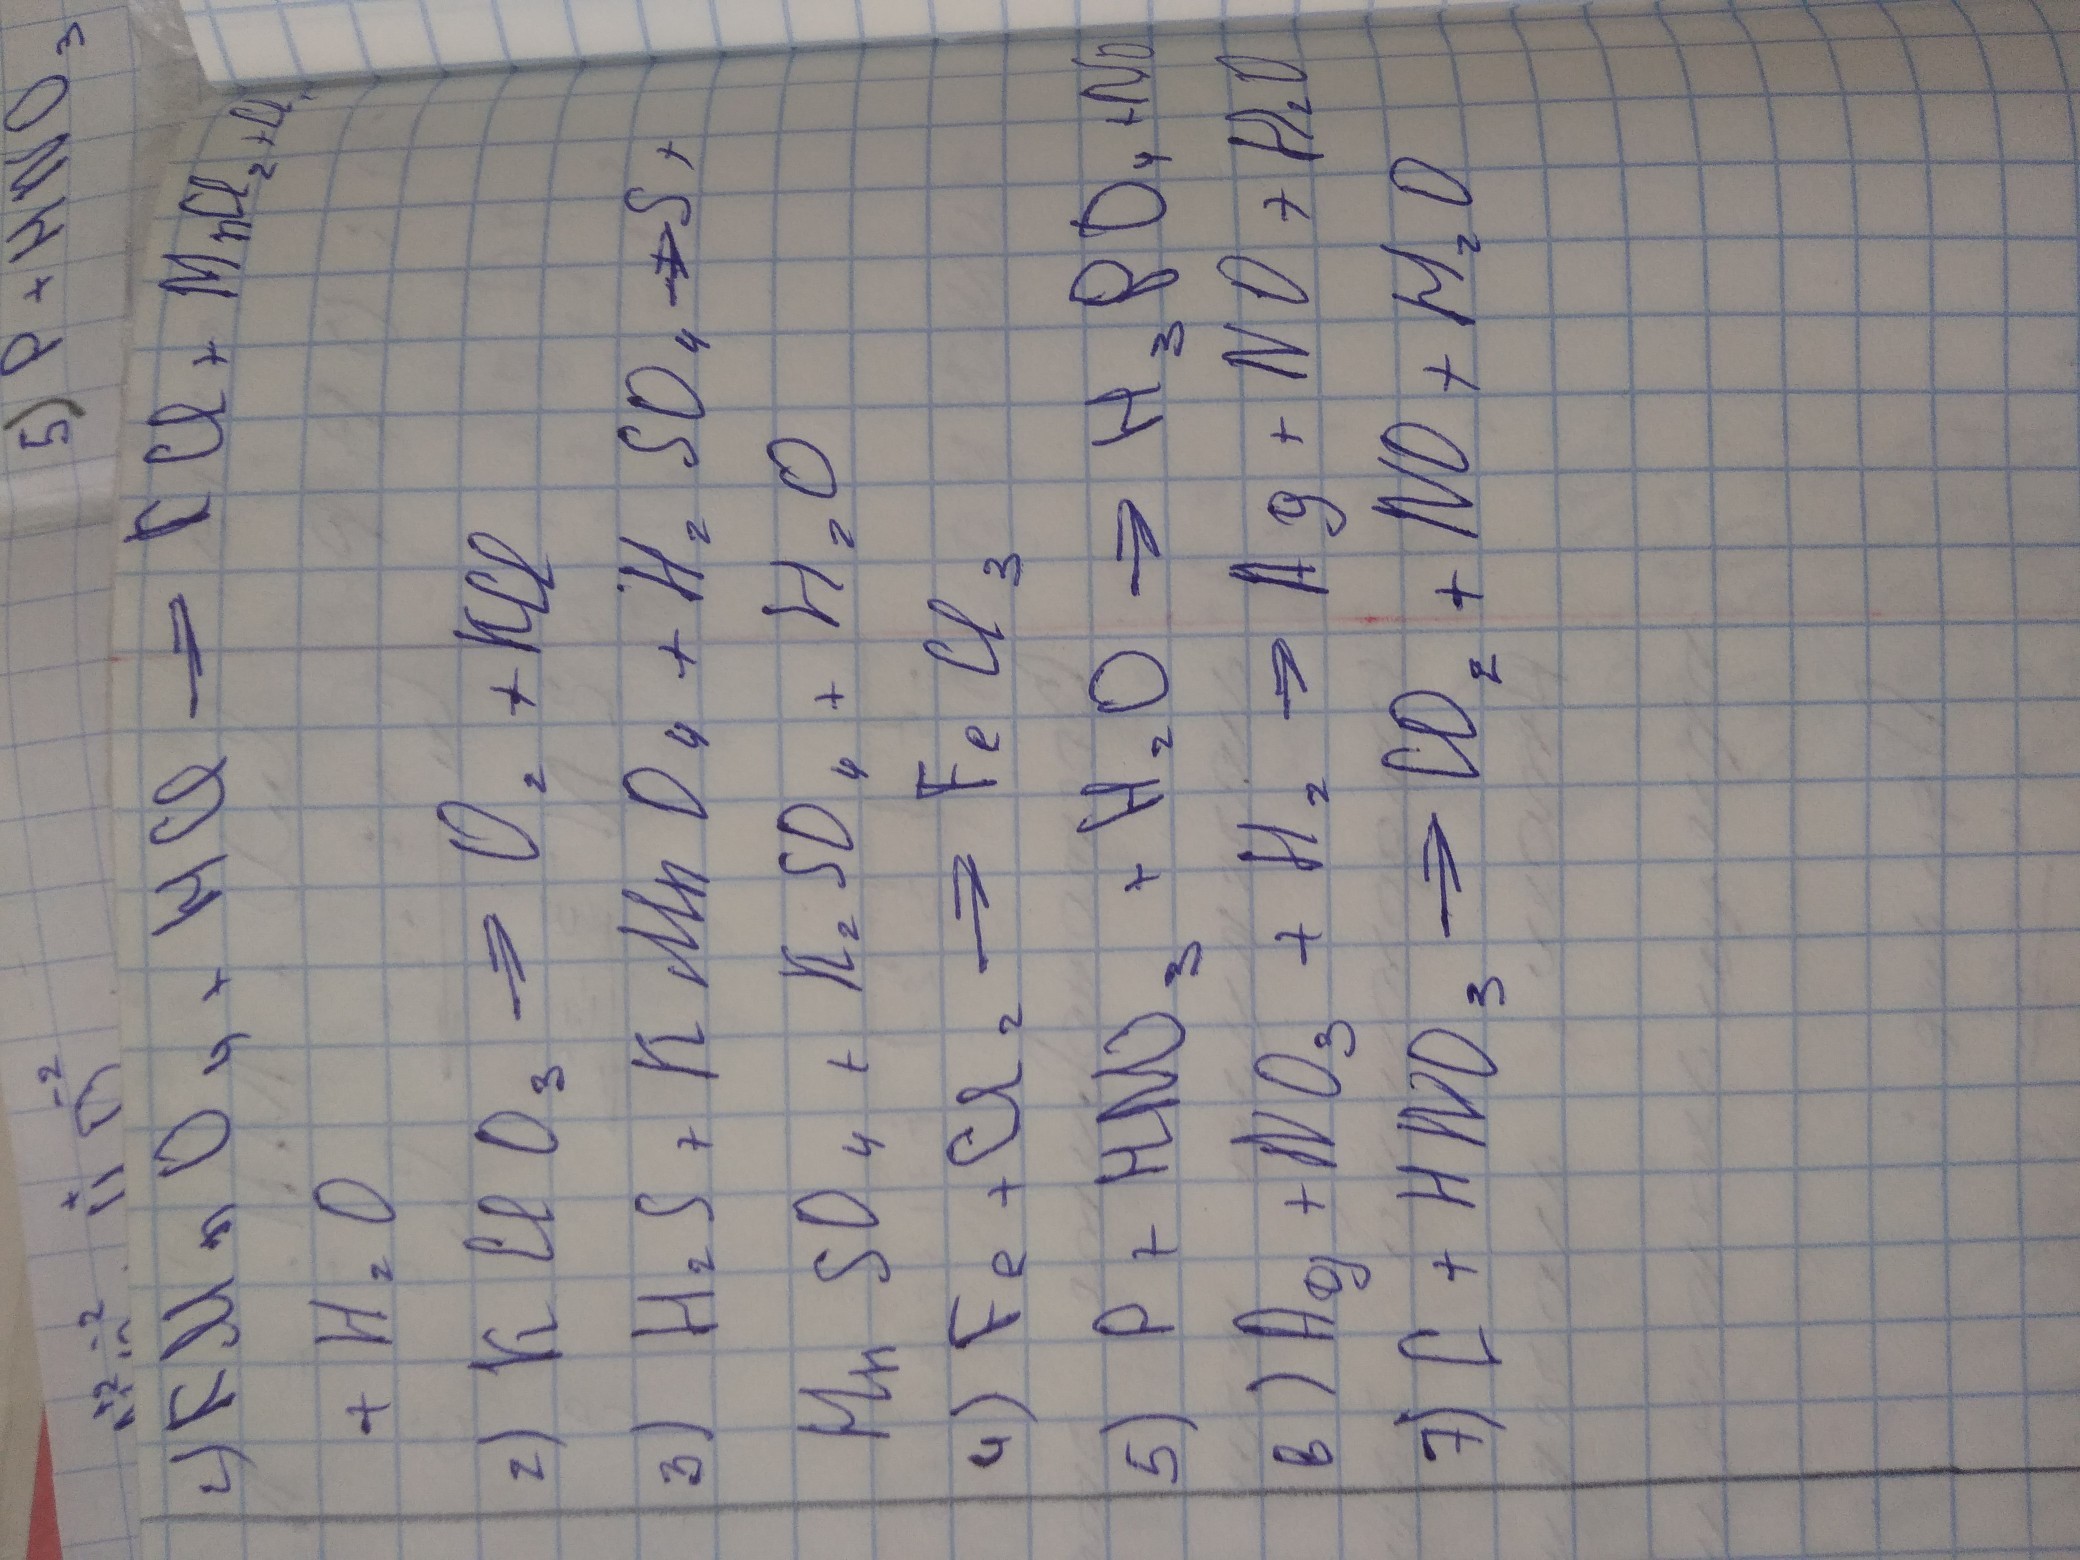 5) P + HNO3
1) KMnO4 + HCl → KCl + MnCl2 + Cl2
+ H2O
2) KClO3 → O2 + KCl
3) H2S + KMnO4 + H2SO4 → S +
MnSO4 + K2SO4 + H2O
4) Fe + Cl2 → FeCl3
5) P + HNO3 + H2O → H3PO4 + NO
6) Ag + NO3 + H2 → Ag + NO + H2O
7) C + HNO3 → CO2 + NO + H2O